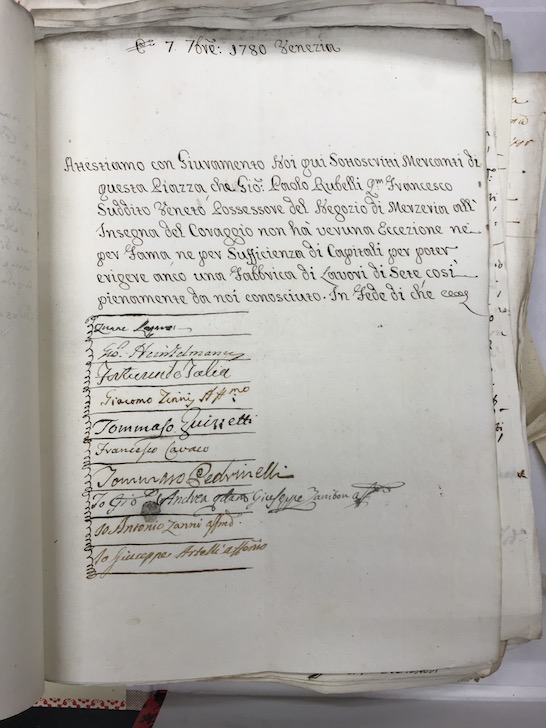 7 7bre: 1780 Venezia
Attestiamo con Giuramento Noi qui Sottoscritti Mercanti di
questa Piazza che Gio: Paolo Rubelli qm Francesco
Suddito Veneto Possessore del Negozio di Merzeria all'
Insegna del Coraggio non ha veruna Eccezione ne
per Fama ne per Sufficienza di Capitali per poter
erigere anco una Fabbrica di Lavori di Sete così
pienamente da noi conosciuto. In Fede di che
Gio. Heinzelmann
Talia
Giacomo Zinnis Affmo
Tommaso
Francesco Cavaco
Tommaso Pedrinelli
Io Gio Andrea Giuseppe Zanibon
Io Antonio Zanni affmo
Io Giuseppe Artelli affermo